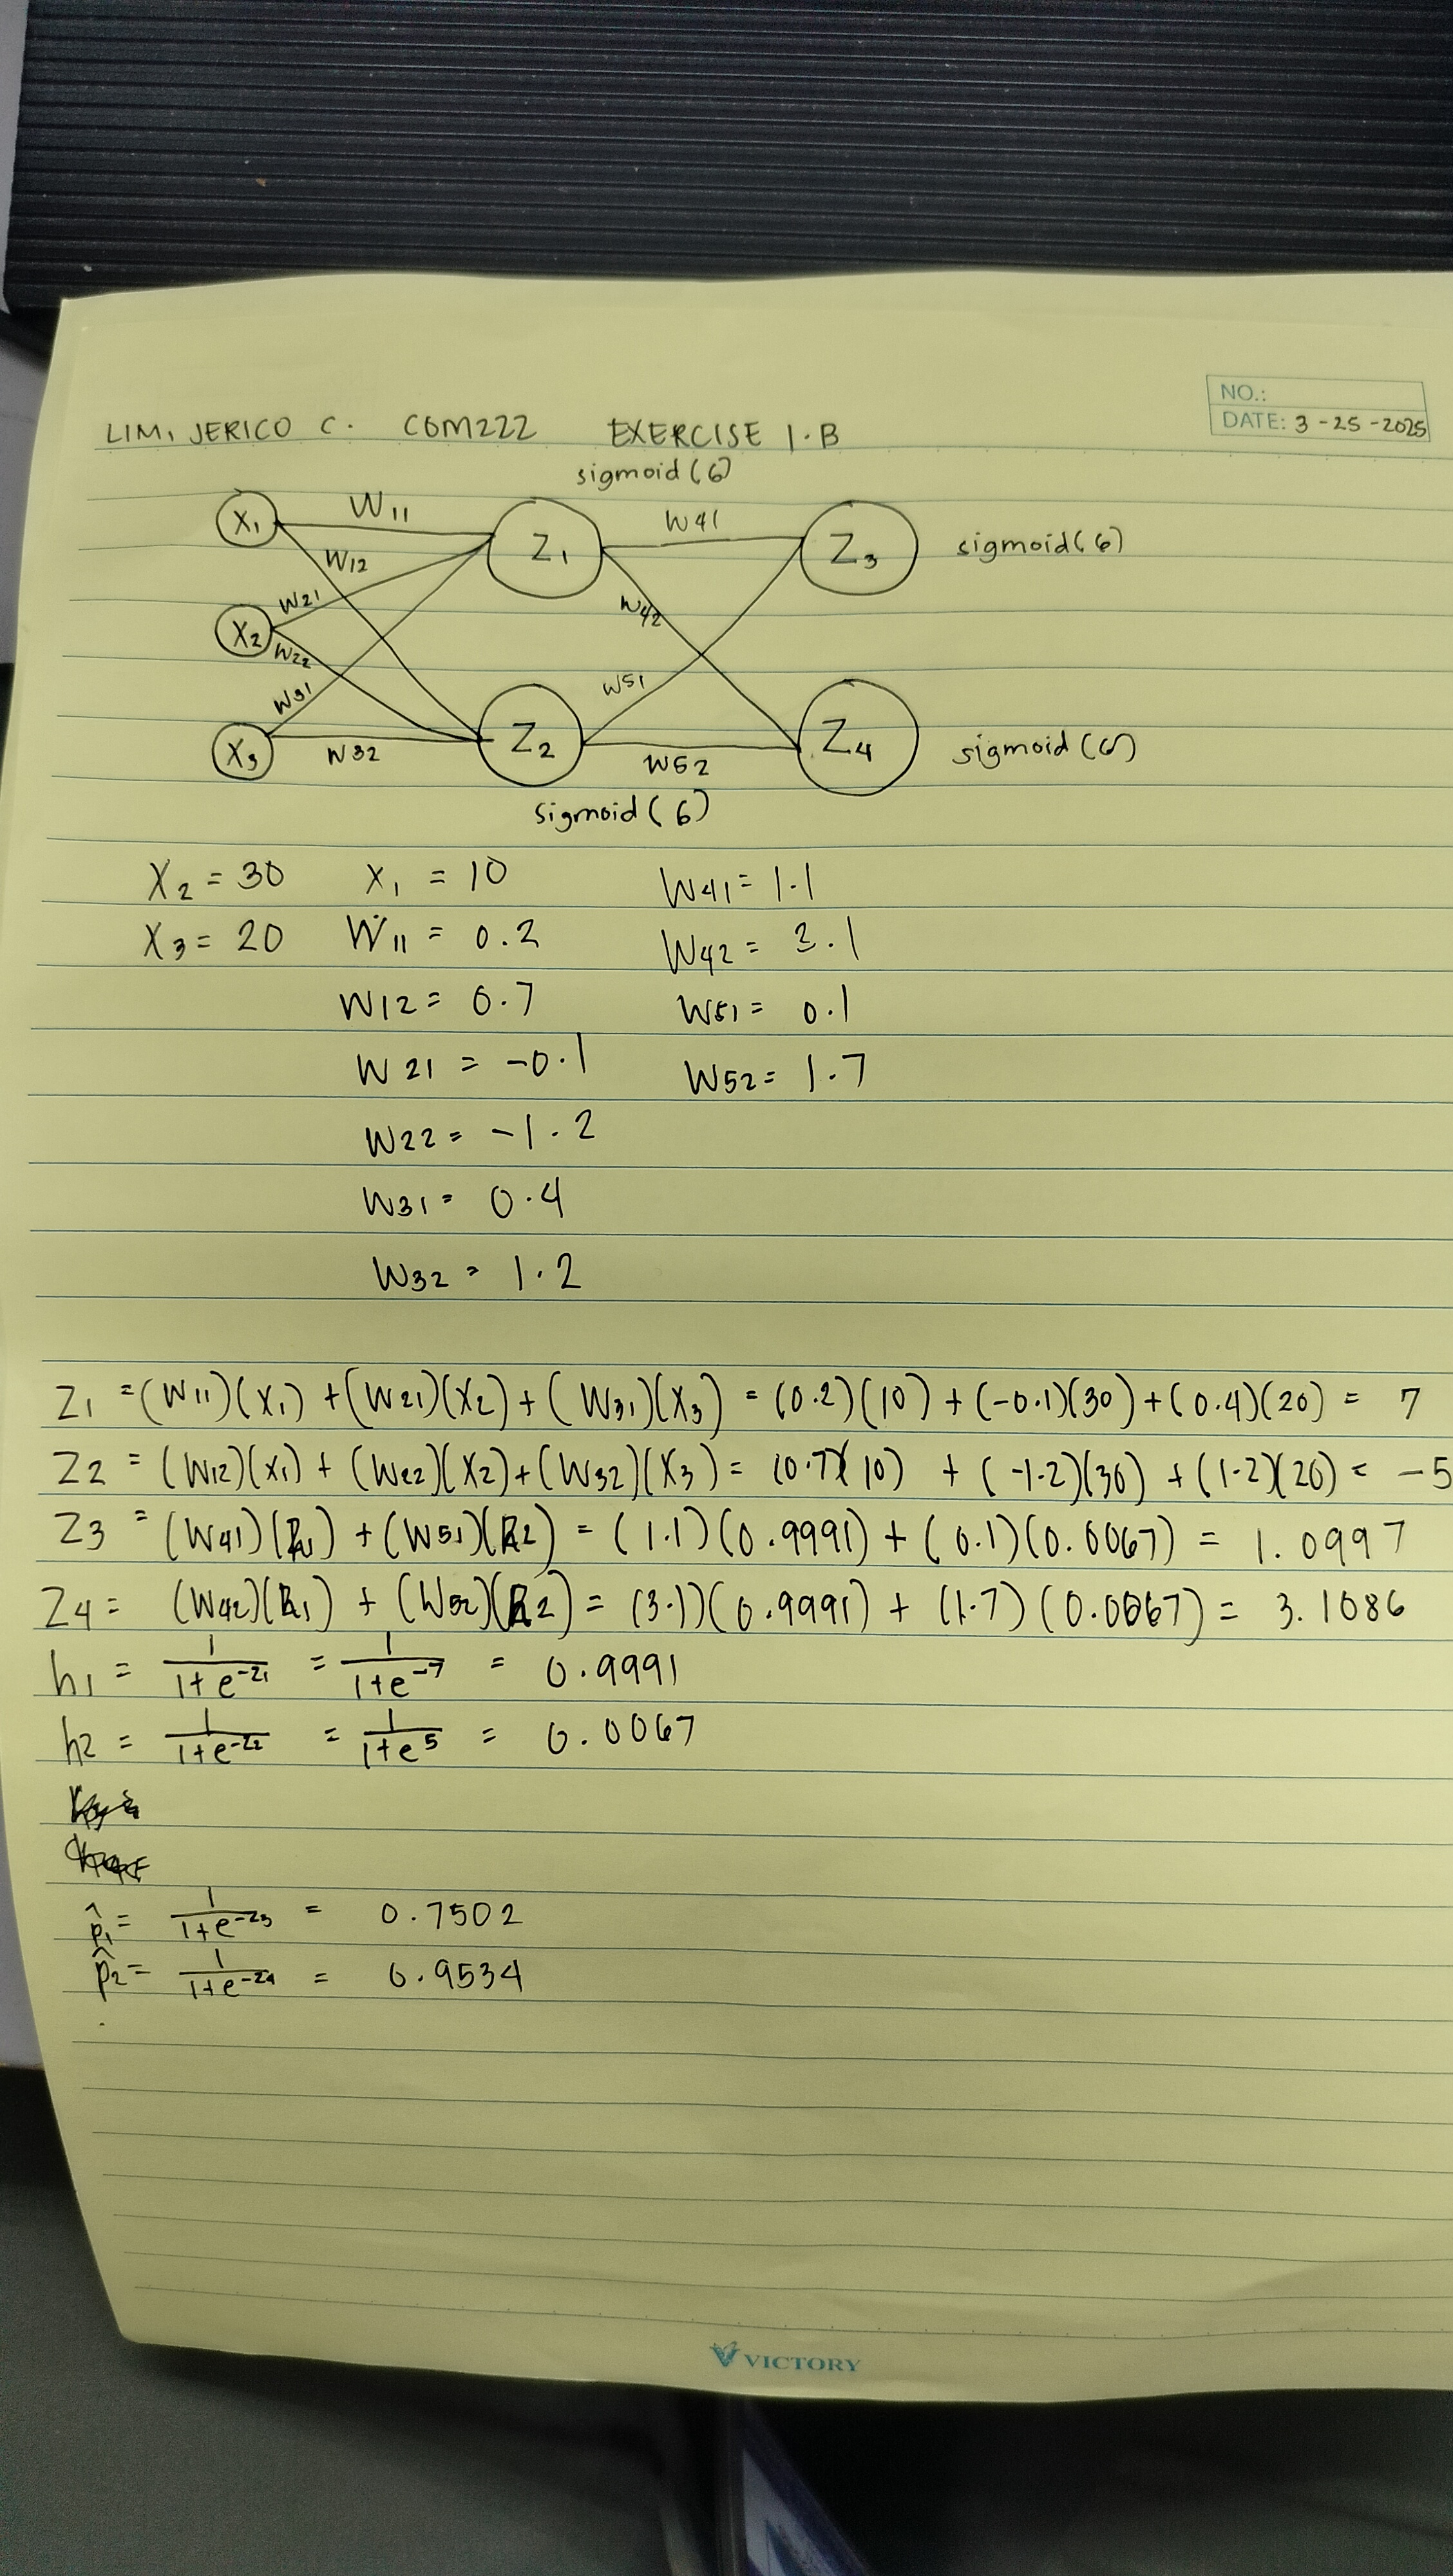 NO.:
DATE: 3-25-2025
LIM, JERICO C. COM222 EXERCISE 1.B
sigmoid (6)
X₁ W₁₁ Z₁ W41 Z₃ sigmoid (6)
W12
W21 W42
X₂
W22
W31 W51
X₃ W32 Z₂ W52 Z₄ sigmoid (6)
sigmoid (6)
X₂ = 30 X₁ = 10 W41 = 1.1
X₃ = 20 W₁₁ = 0.2 W42 = 3.1
W12 = 0.7 W51 = 0.1
W21 = -0.1 W52 = 1.7
W22 = -1.2
W31 = 0.4
W32 = 1.2
Z₁ = (W11)(X₁) + (W21)(X₂) + (W31)(X₃) = (0.2)(10) + (-0.1)(30) + (0.4)(20) = 7
Z2 = (W12)(X1) + (W22)(X2) + (W32)(X3) = (0.7)(10) + (-1.2)(30) + (1.2)(20) = -5
Z3 = (W41)(h1) + (W51)(h2) = (1.1)(0.9991) + (0.1)(0.0067) = 1.0997
Z4 = (W42)(h1) + (W52)(h2) = (3.1)(0.9991) + (1.7)(0.0067) = 3.1086
h1 = 1/(1+e^-z1) = 1/(1+e^-7) = 0.9991
h2 = 1/(1+e^-z2) = 1/(1+e^5) = 0.0067
p̂₁ = 1/(1+e^-z3) = 0.7502
p̂2 = 1/(1+e^-z4) = 0.9534
VICTORY